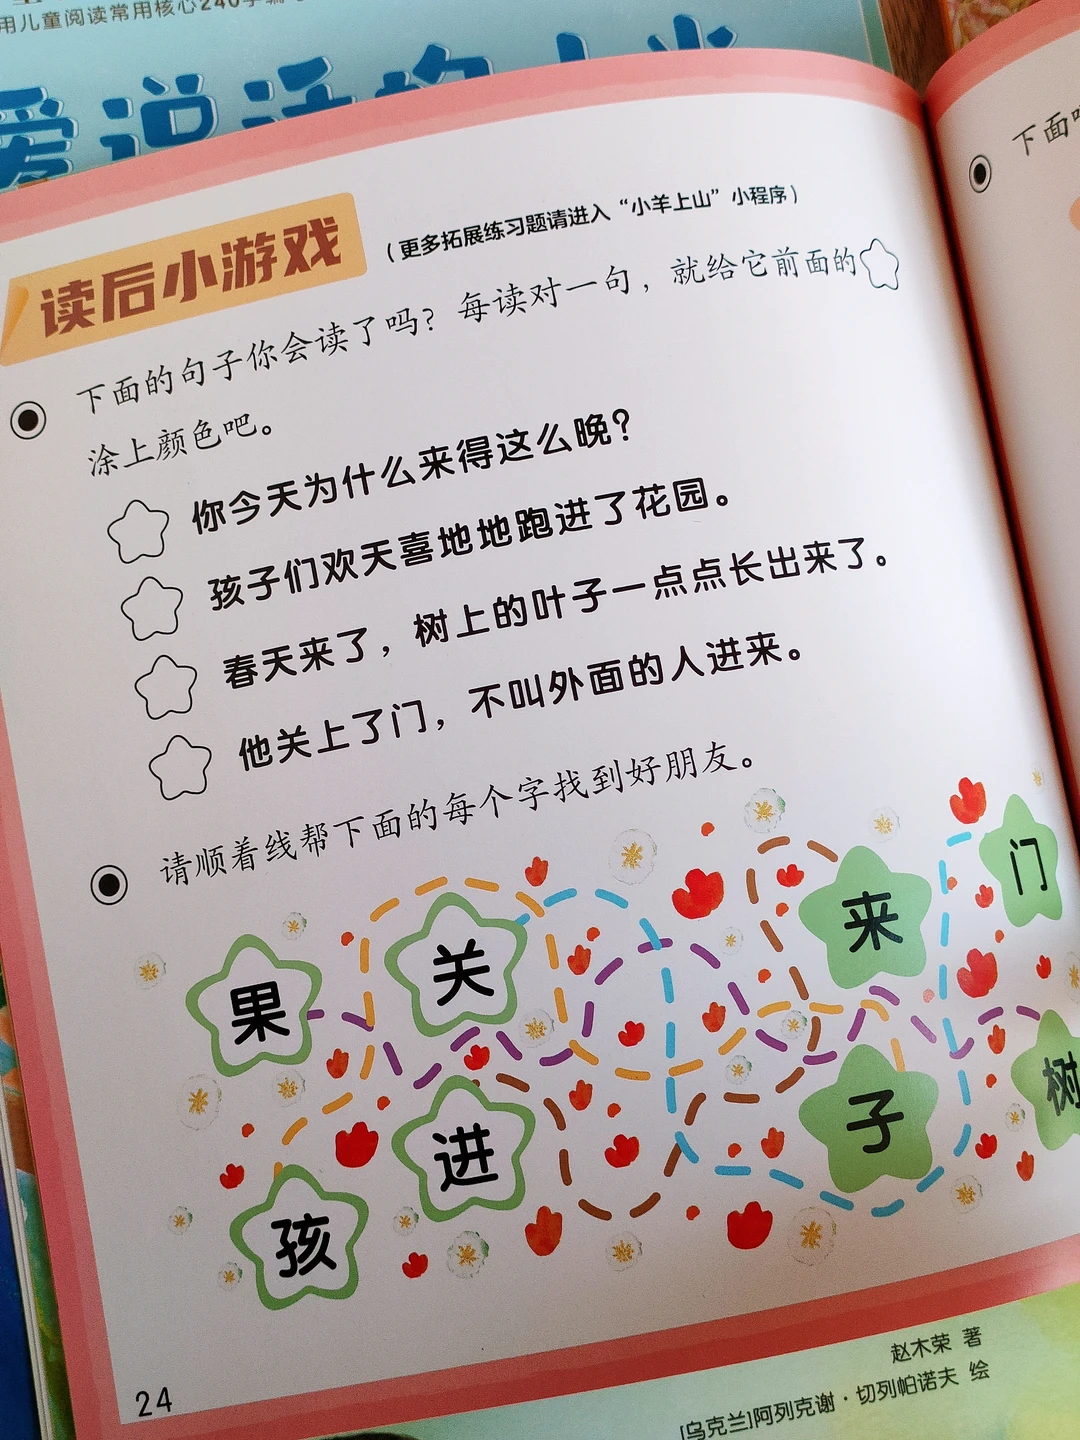 用儿童阅读常用核心240字编
爱说话的小米
读后小游戏
（更多拓展练习题请进入“小羊上山”小程序）
下面的句子你会读了吗？每读对一句，就给它前面的
涂上颜色吧。
你今天为什么来得这么晚？
孩子们欢天喜地地跑进了花园。
春天来了，树上的叶子一点点长出来了。
他关上了门，不叫外面的人进来。
请顺着线帮下面的每个字找到好朋友。
果
关
来
门
孩
进
子
树
24
下面
赵木荣 著
[乌克兰]阿列克谢·切列帕诺夫 绘